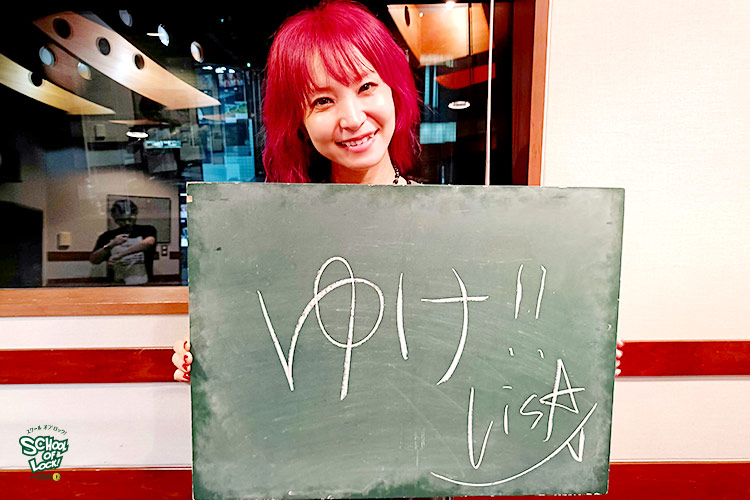 ゆけ!!
LiSA
スクール オブ ロック!
SCHOOL
OF
LOCK!